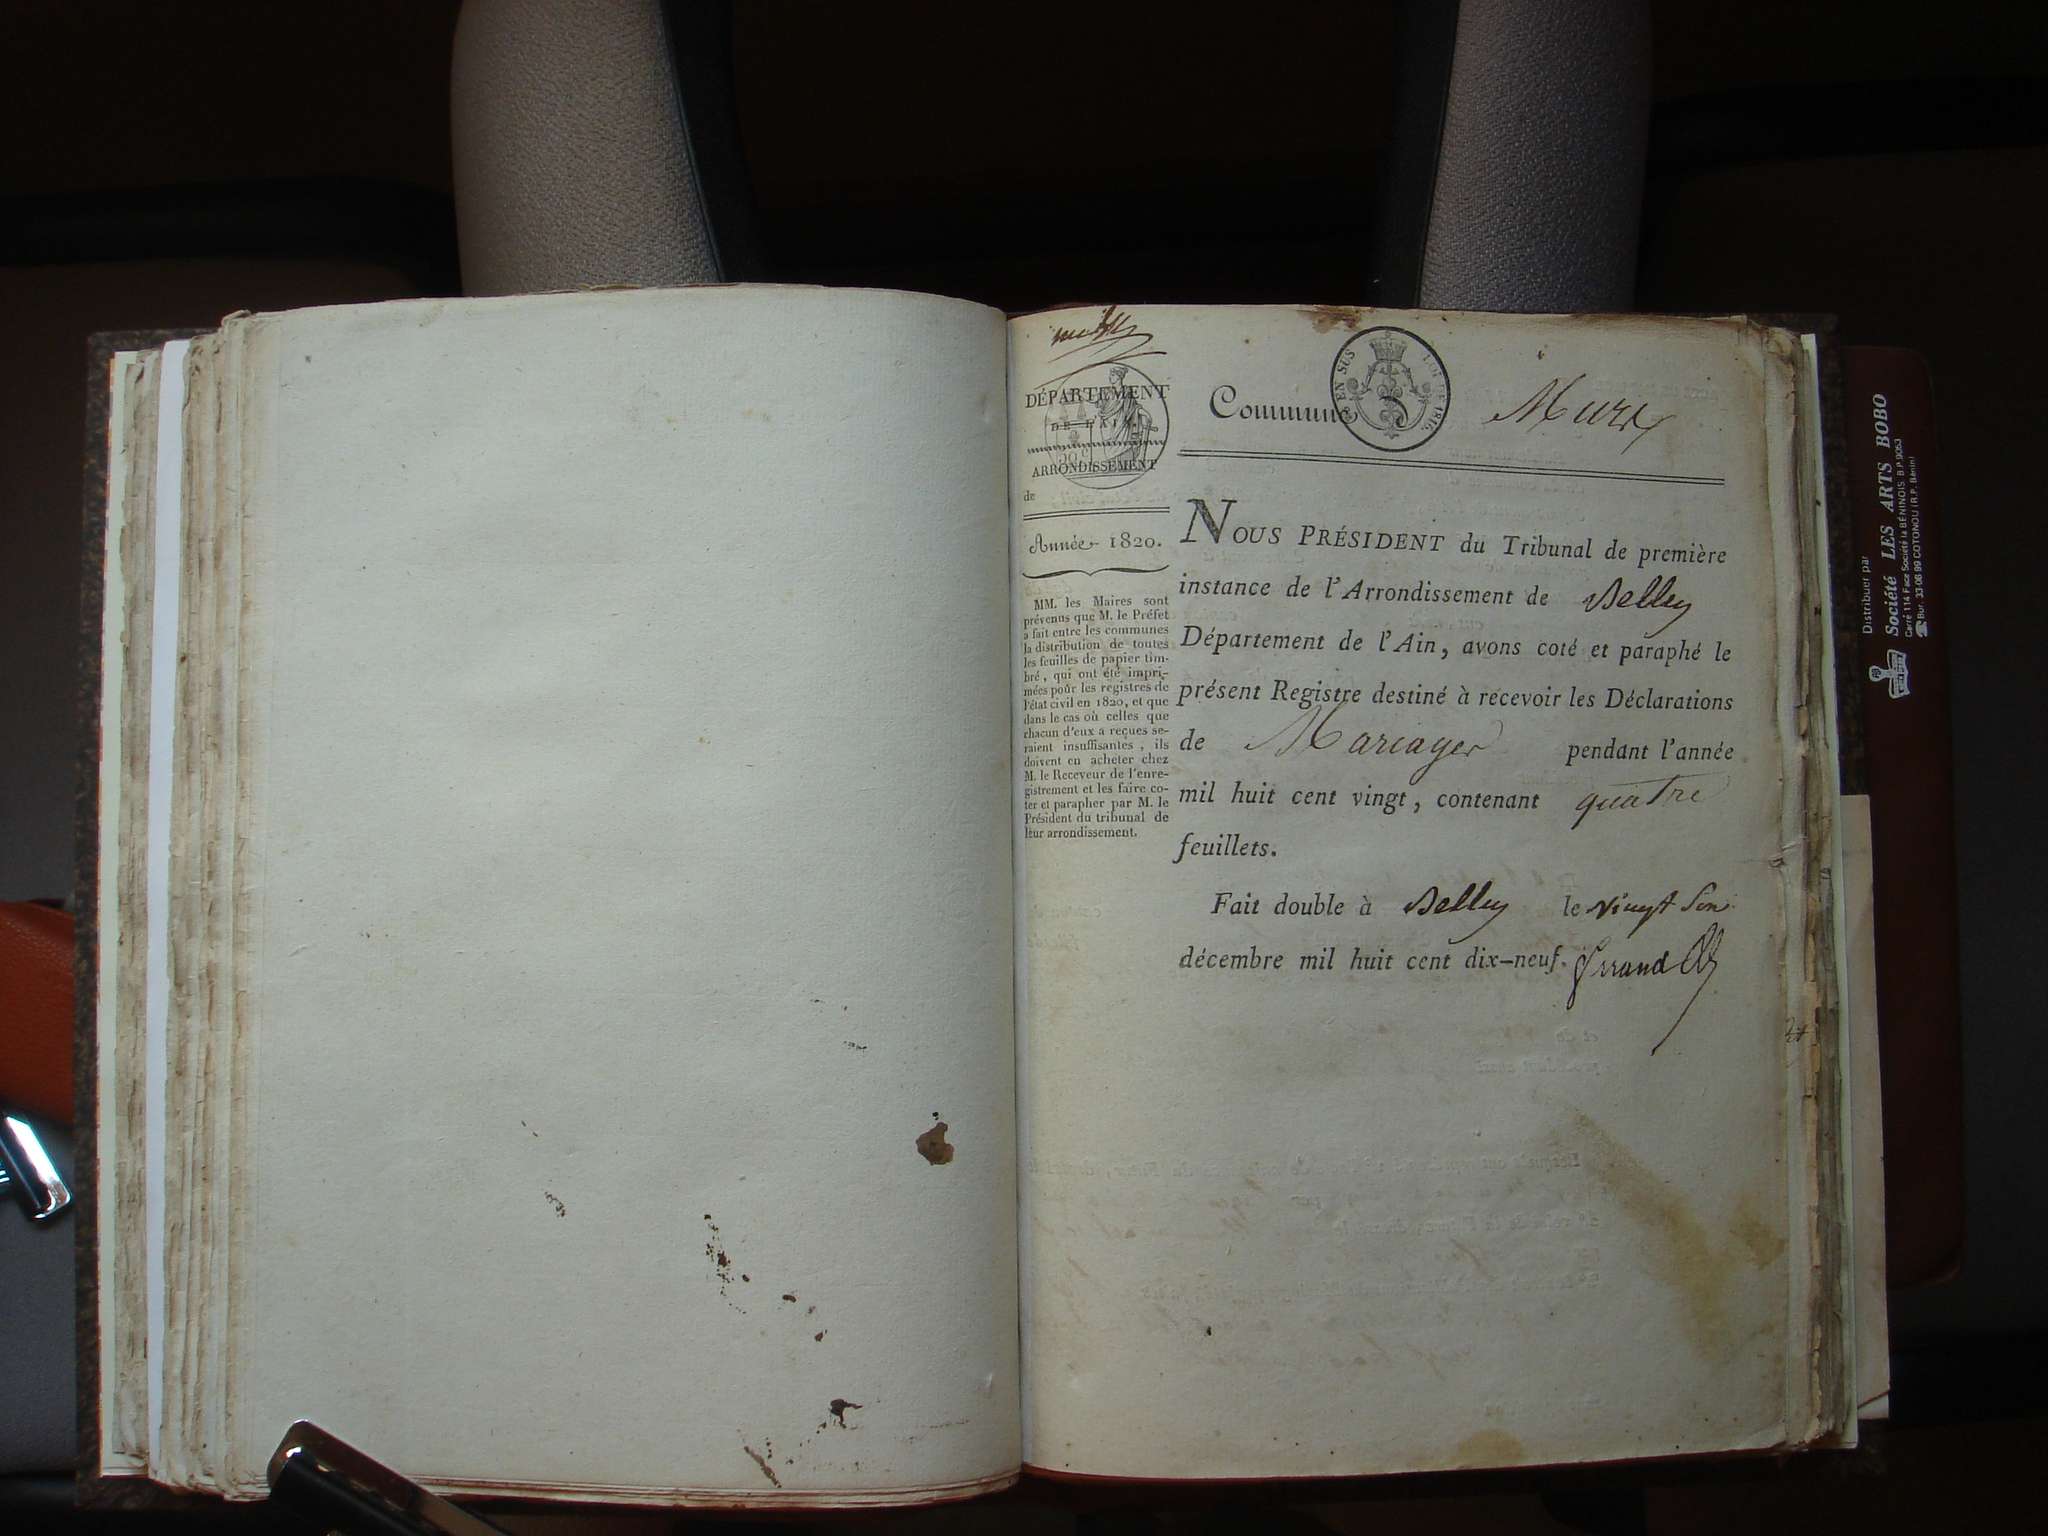 DÉPARTEMENT
DE L'AIN.
ARRONDISSEMENT
de
Année 1820.
MM. les Maires sont
prévenus que M. le Préfet
a fait entre les communes
la distribution de toutes
les feuilles de papier tim-
bré, qui ont été impri-
mées pour les registres de
l'état civil en 1820, et que
dans le cas où celles que
chacun d'eux a reçues se-
raient insuffisantes, ils
doivent en acheter chez
M. le Receveur de l'enre-
gistrement et les faire co-
ter et parapher par M. le
Président du tribunal de
leur arrondissement.
EN SUS LOI DE 1816.
Commune Murs
NOUS PRÉSIDENT du Tribunal de première
instance de l'Arrondissement de Belley
Département de l'Ain, avons coté et paraphé le
présent Registre destiné à recevoir les Déclarations
de Mariages pendant l'année
mil huit cent vingt, contenant quatre
feuillets.
Fait double à Belley le Vingt
décembre mil huit cent dix-neuf.
Distribuer par
Société LES ARTS BOBO
Carré 114 Face Société la BÉNINOIS. B.P. 9063
Bur. 33-06 99 COTONOU (R.P. Bénin)